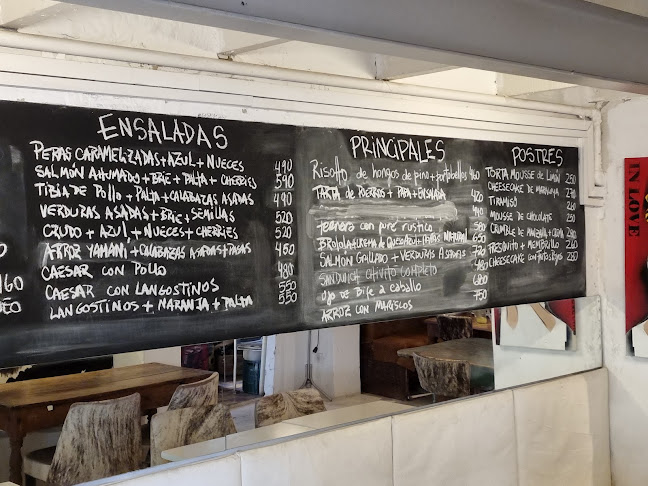 ENSALADAS
PERAS CARAMELIZADAS+AZUL+NUECES 490
SALMON AHUMADO+BRIE+PALTA+CHERRIES 590
TIBIA DE POLLO+PALTA+CALABAZAS ASADAS 490
VERDURAS ASADAS+BRIE, SEMILLAS 520
CRUDO+AZUL, NUECES+CHERRIES 520
ARROZ YAMANI+CALABAZAS ASADAS+PASAS 450
CAESAR CON POLLO 480
CAESAR CON LANGOSTINOS 550
LANGOSTINOS+NARANJA+PALTA 550
PRINCIPALES
Risotto de hongos de pino+portobellos 460
TARTA DE PUERROS+PAPA+ENSALADA
ternera con puré rustico
SALMON GRILLADO+VERDURAS ASADAS
SANDWICH CHIVITO COMPLETO
ojo de Bife a caballo
ARROZ CON MARISCOS 750
POSTRES
TORTA MOUSSE DE LIMON 250
CHEESECAKE DE MARACUYA
TIRAMISÚ
MOUSSE DE CHOCOLATE
CRUMBLE DE MANZANA+CREMA
MEMBRILLO
CHEESECAKE
IN LOVE